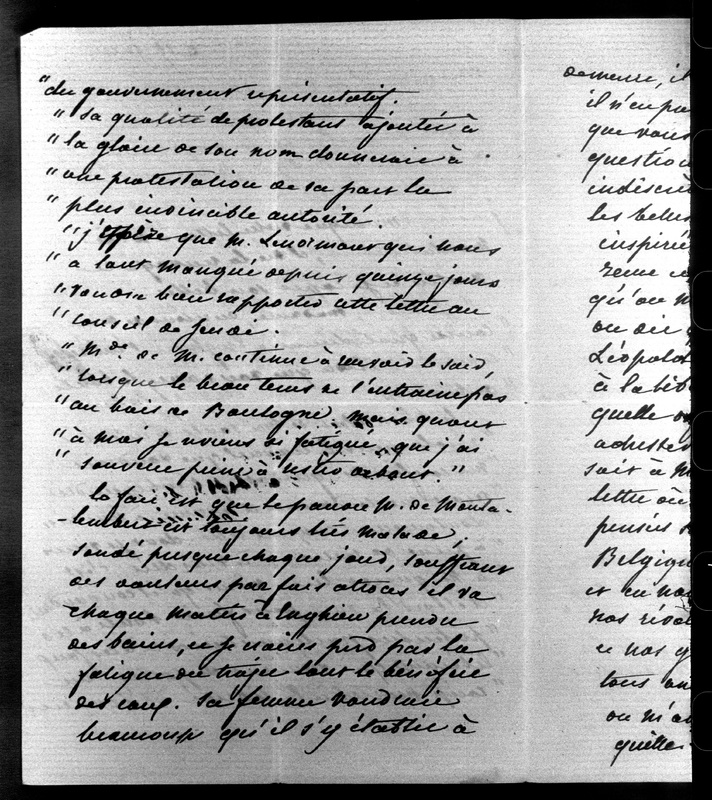 "du gouvernement représentatif.
" Sa qualité de protestant ajoutée à
" la gloire de son nom donnerait à
" une protestation de sa part la
" plus invincible autorité.
" J'espère que M. Lenormant qui nous
" a tant manqué depuis quinze jours
" voudra bien rapporter cette lettre au
" conseil de jeudi.
" Mde. de M. continue à recevoir le soir,
" lorsque le beau tems ne l'entraine pas
" au bois de Boulogne, mais quant
" à moi je reviens si fatigué, que j'ai
" souvent peine à rester debout."
Le fait est que le pauvre M. de Monta-
-lembert est toujours très malade,
sondé presque chaque jour, souffrant
des douleurs parfois atroces il va
chaque matin à Enghien prendre
des bains, et je crains perd par la
fatigue du trajet tout le bénéfice
des eaux. Sa femme voudrait
beaucoup qu'il s'y établit à
demeure, il
il n'en pa
que vous
question
indiscrè
les belles
inspiré
qu'on m
ou dit
Léopold
à la bib
quelle
adresser
soit à M
lettre où
pensées
Belgique
et en no
nos
ce nos
tous
ou m'a
quelle